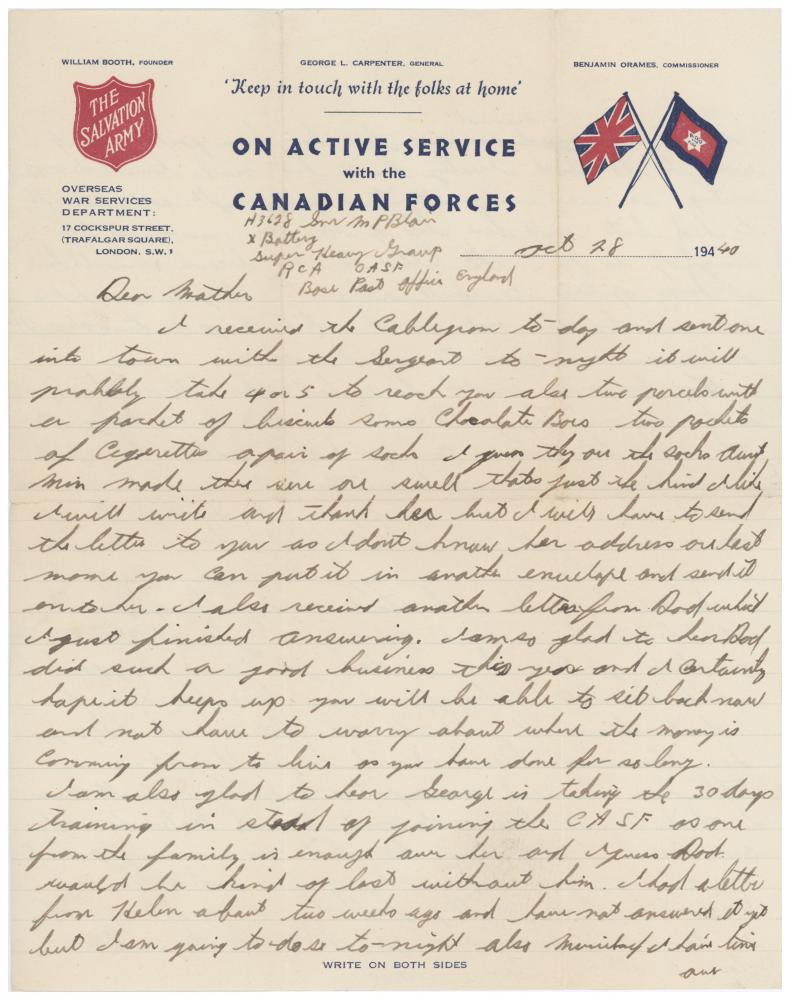 WILLIAM BOOTH, FOUNDER
GEORGE L. CARPENTER, GENERAL
BENJAMIN ORAMES, COMMISSIONER
THE
SALVATION
ARMY
'Keep in touch with the folks at home'
ON ACTIVE SERVICE
with the
CANADIAN FORCES
OVERSEAS
WAR SERVICES
DEPARTMENT:
17 COCKSPUR STREET,
(TRAFALGAR SQUARE),
LONDON, S.W.1
H3628 Gnr M P Blair
X Battery
Super Heavy Group
RCA CASF
Base Post Office England
Oct 28 194 40
Dear Mother
I received the Cablegram to-day and sent one
into town with the Sergeant to-night it will
probably take 4 or 5 to reach you also two parcels with
a packet of biscuits some Chocolate Bars two packets
of Cigerettes a pair of socks I guess they are the socks Aunt
Min made they sure are swell thats just the kind I like
I will write and thank her but I will have to send
the letter to you as I dont know her address or last
name you can put it in another envelope and send it
on to her - I also received another letter from Dad which
I just finished answering. I am so glad to hear Dad
did such a good business this year and I certainly
hope it keeps up you will be able to sit back now
and not have to worry about where the money is
comming from to live as you have done for so long.
I am also glad to hear George is taking the 30 days
training in stead of joining the CASF as one
from the family is enough over her and I guess Dad
would be kind of lost without him. I had a letter
from Helen about two weeks ago and have not answered it yet
but I am going to do so to-night also I have
our
WRITE ON BOTH SIDES